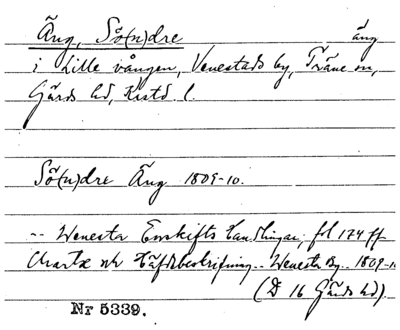 Äng, Sö(n)dre äng
i Lille vången, Venestads by, Träne sn,
Gärds hd, Kristd. l.
Sö(n)dre Äng 1809-10.
-- Wenesta Enskifts Handlingar, fol 174 ff
Chartæ och Häfdebeskrifning.. Wenesta By.. 1809-10
(D 16 Gärds hd).
Nr 5339.